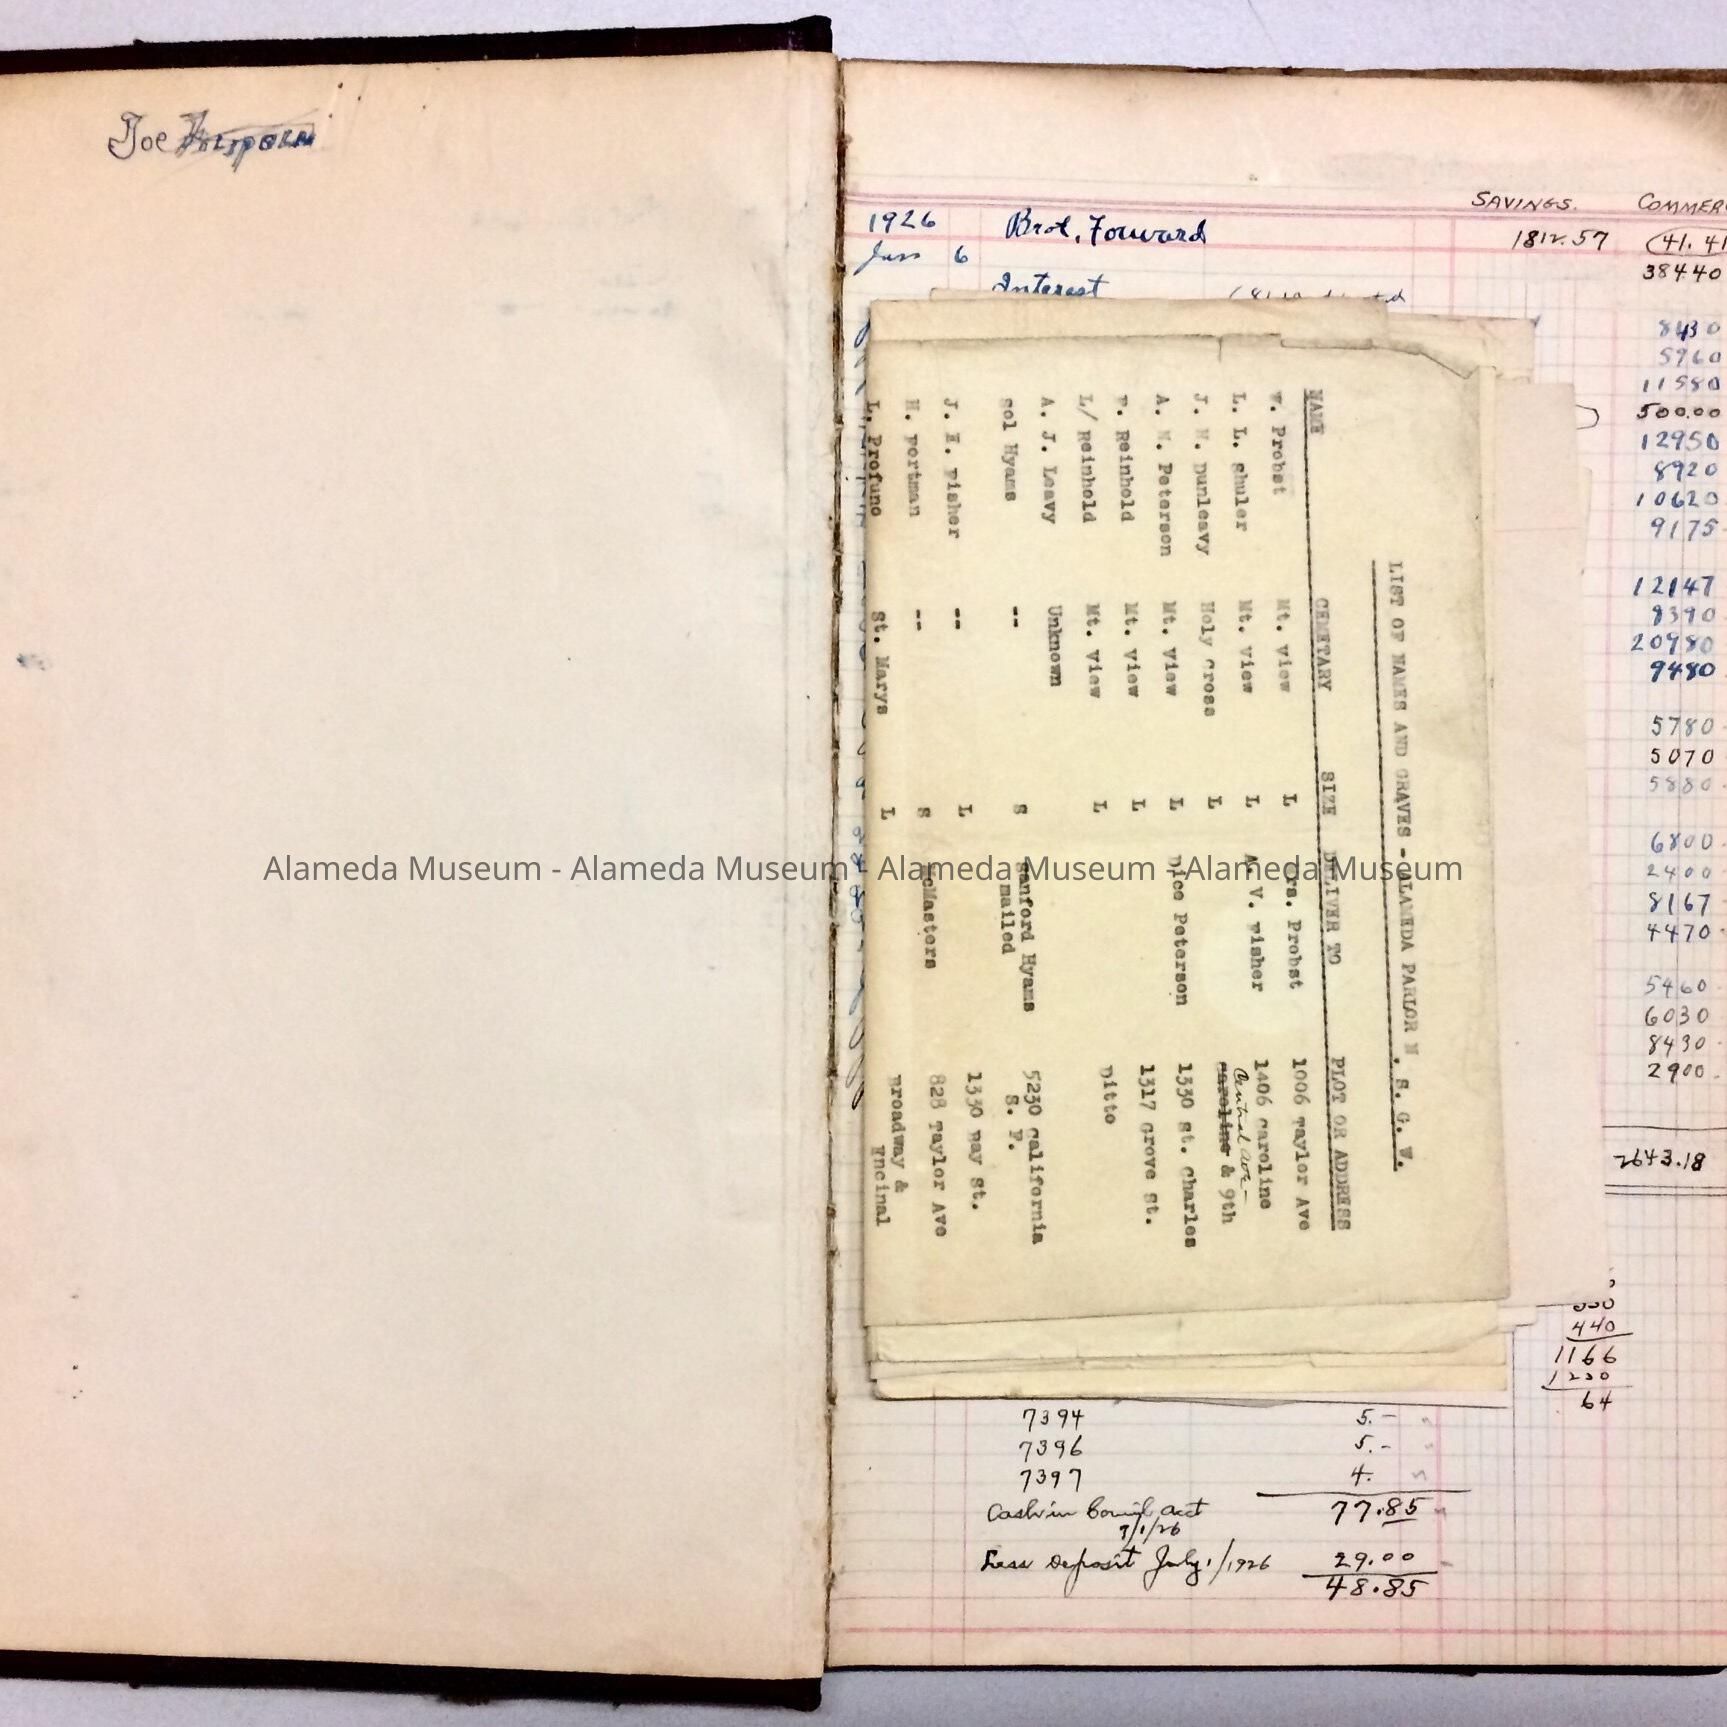 Joe
1926 Brot. Forward
SAVINGS. COMMER
1812.57 (41.41
Jan 6
38440
Interest
8430
5960
11580
500.00
12950
8920
10620
9175
12147
8390
20980
9480
5780
5070
5880
6800
2400
8167
4470
5460
6030
8430
2900
2643.18
LIST OF NAMES AND GRAVES - ALAMEDA PARLOR N. S. G. W.
NAME CEMETARY SIZE DELIVER TO PLOT OR ADDRESS
W. Probst Mt. View L Mrs. Probst 1006 Taylor Ave
L. L. Shuler Mt. View L A. V. Fisher 1406 Caroline
Central Ave
J. N. Dunleavy Holy Cross L Caroline & 9th
A. N. Peterson Mt. View L Dice Peterson 1330 St. Charles
F. Reinhold Mt. View L 1317 Grove St.
L/ Reinhold Mt. View L Ditto
A. J. Leavy Unknown
Sol Hyams -- S Sanford Hyams 5230 California
mailed S. F.
J. E. Fisher -- L 1330 Bay St.
H. Portman -- S McMasters 828 Taylor Ave
L. Profuno St. Marys L Broadway &
Encinal
440
1166
1230
64
7394 5.-
7396 5.-
7397 4.
77.85
7/1/26
Less deposit July 1/1926 29.00
48.85
Alameda Museum - Alameda Museum - Alameda Museum - Alameda Museum